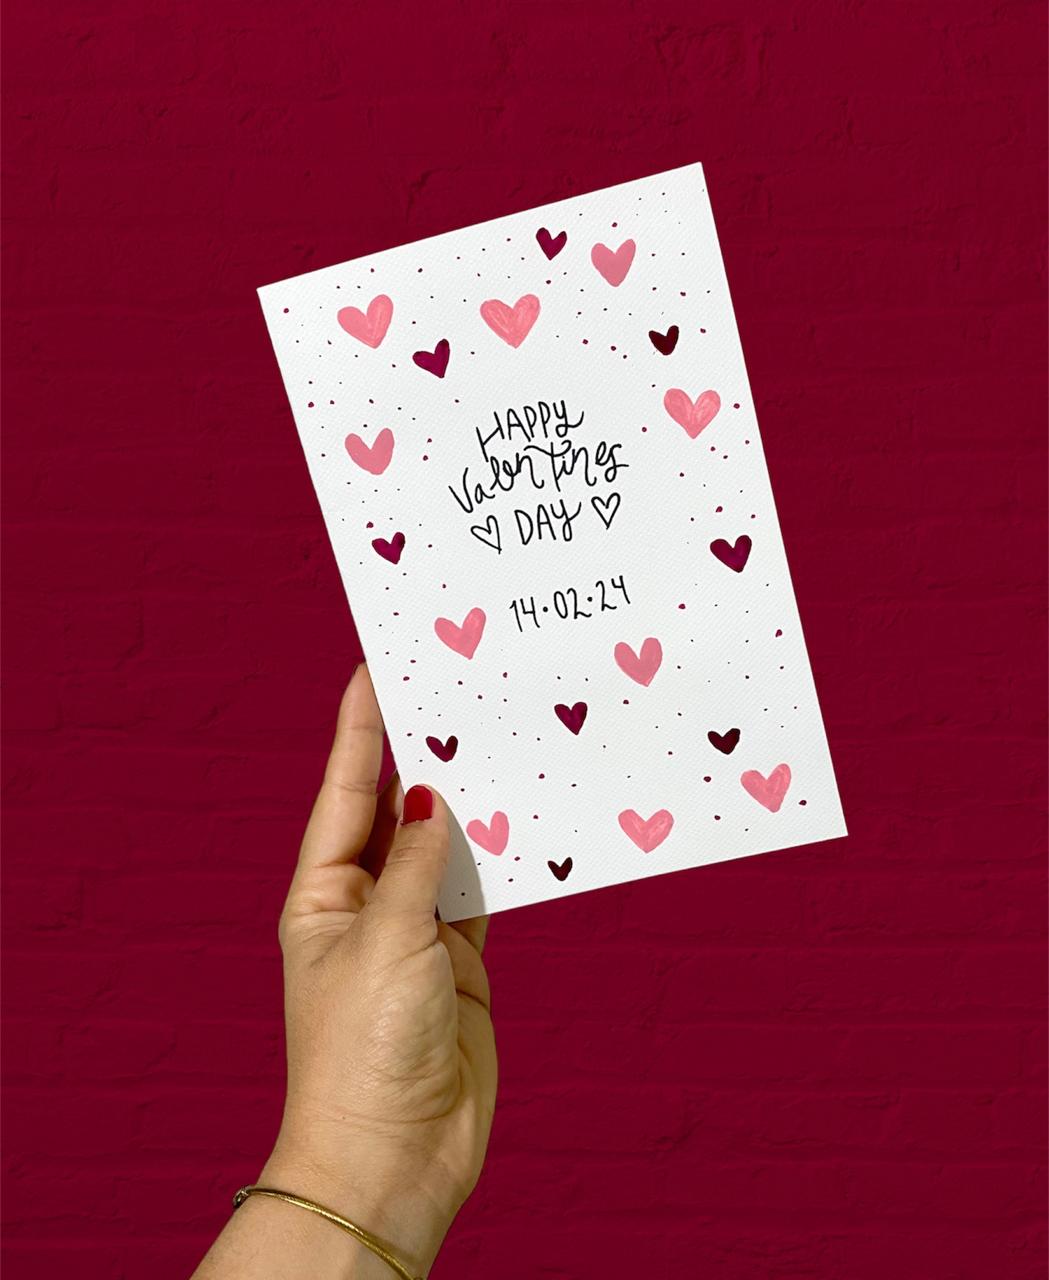 HAPPY
Valentines
♡ DAY ♡
14·02·24